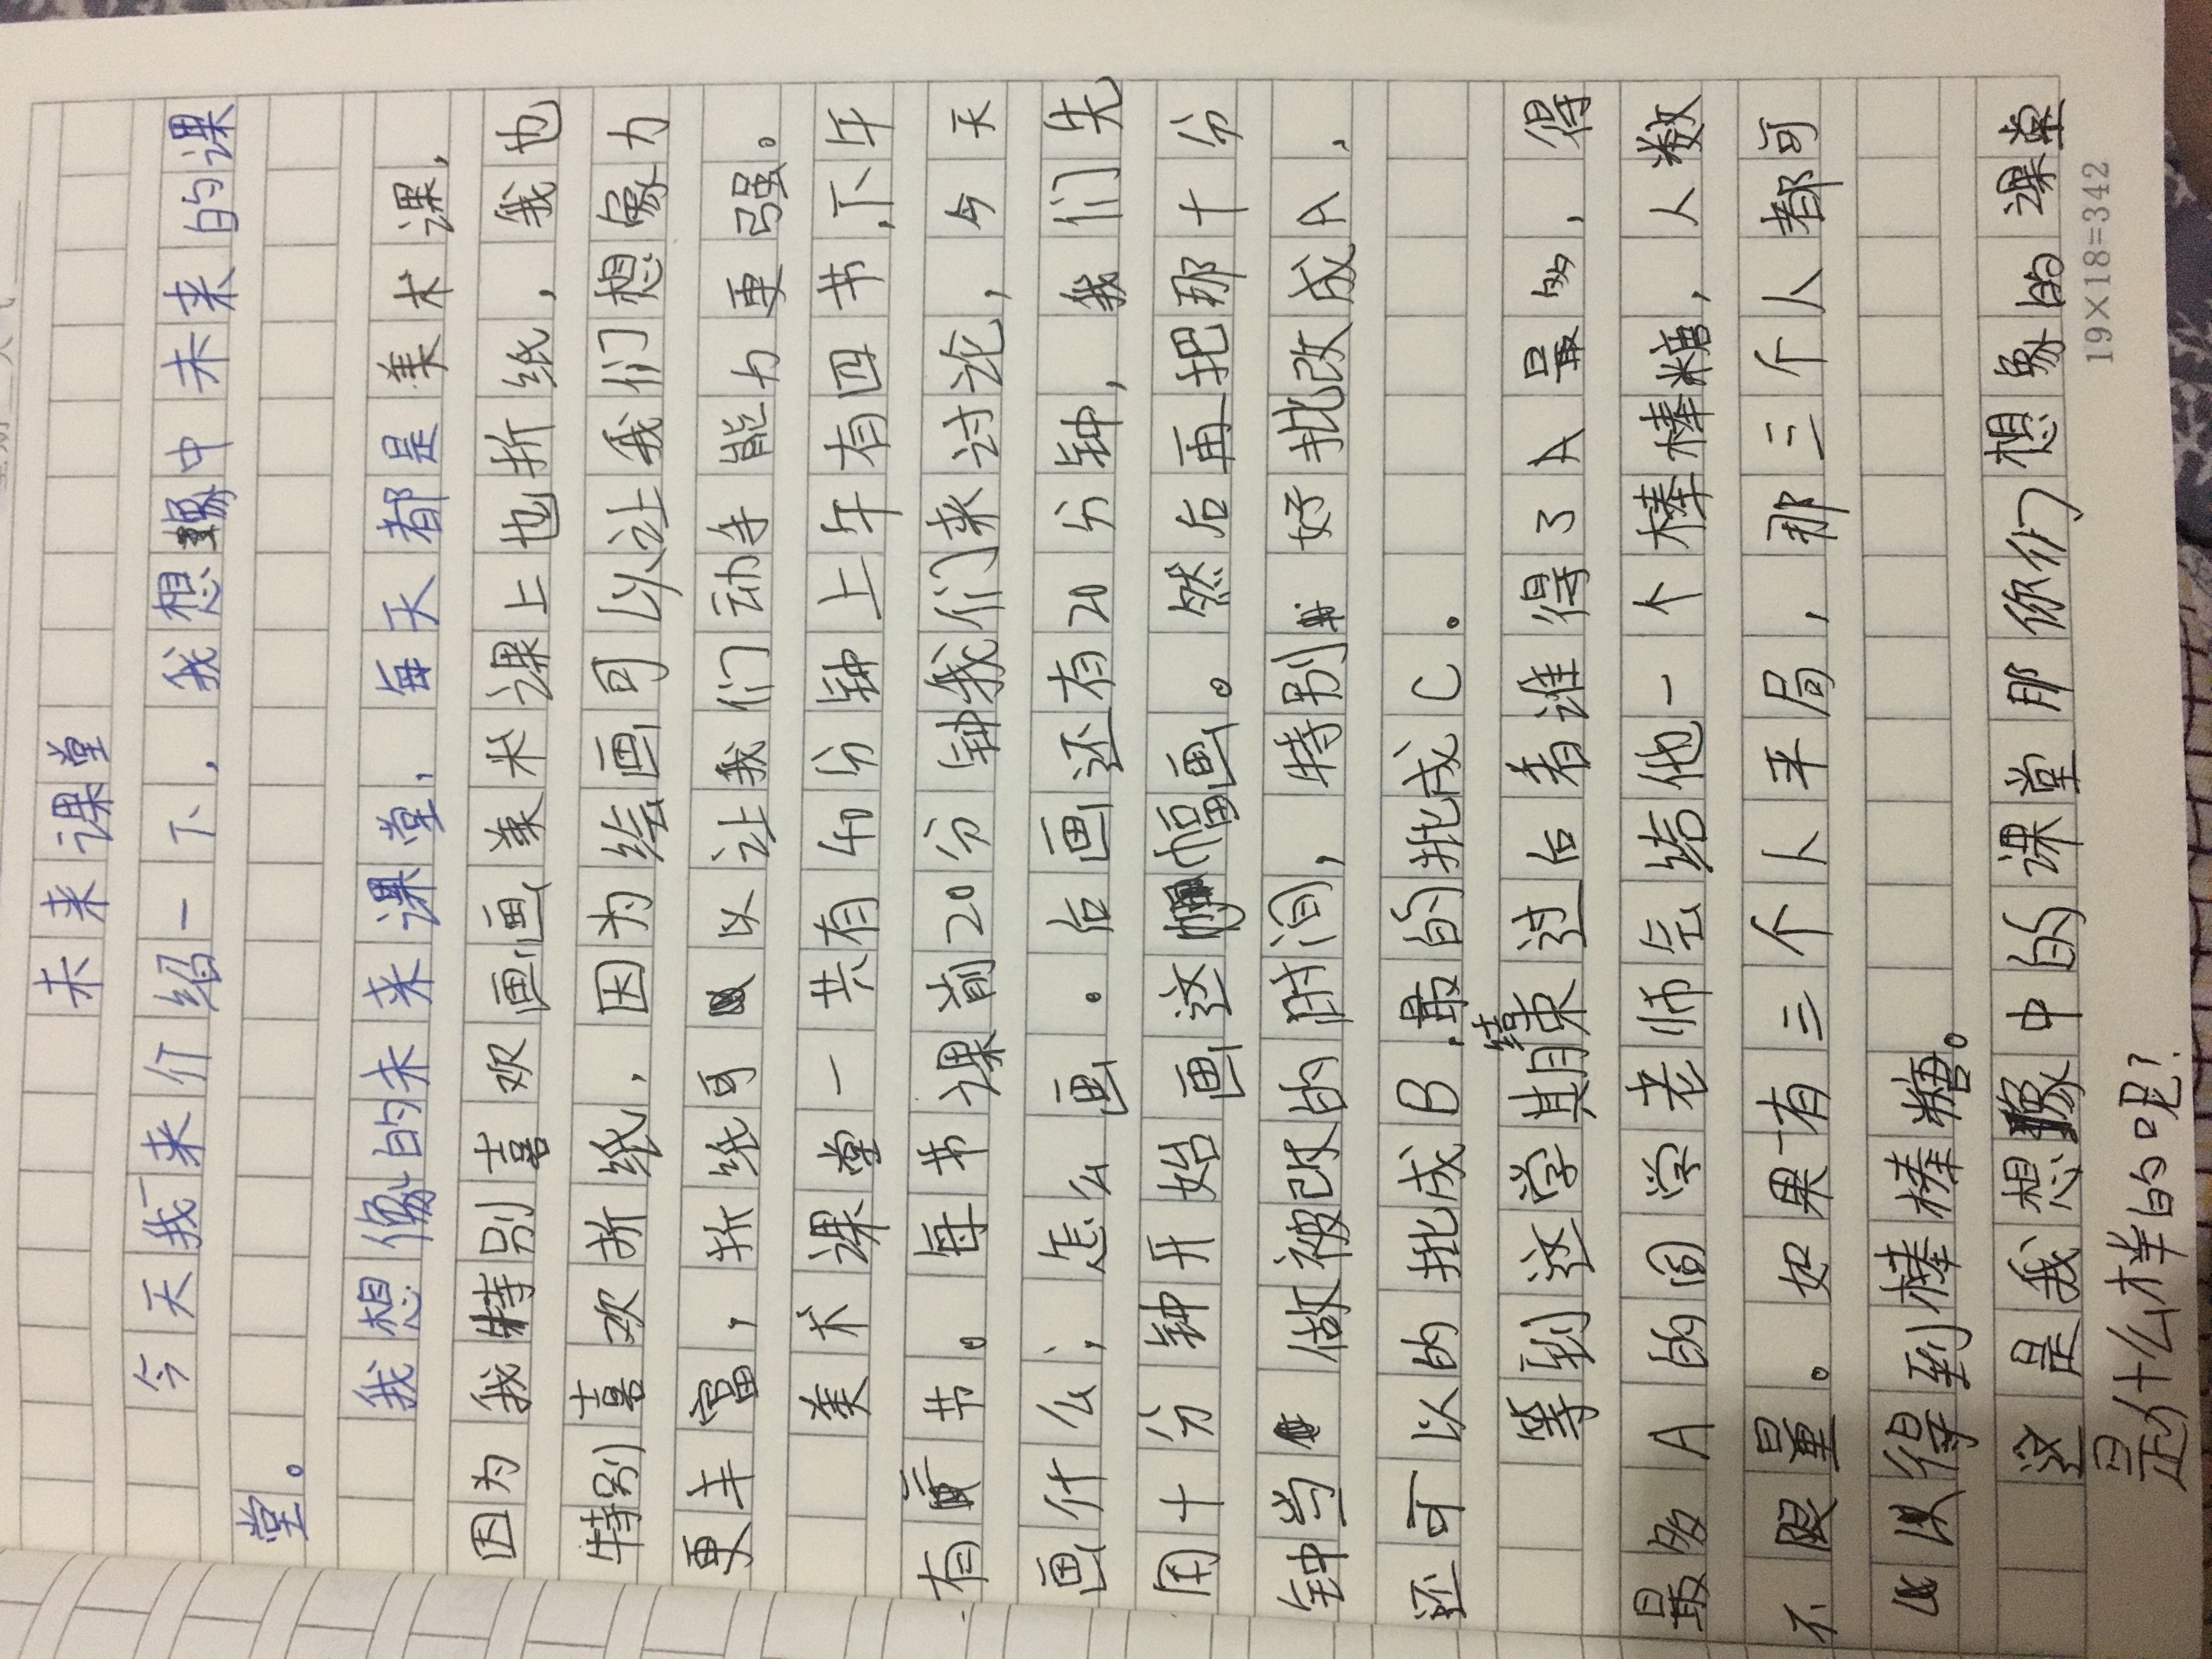 未来课堂
今天我来介绍一下，我想象中未来的课
堂。
我想像的未来课堂，每天都是美术课，
因为我特别喜欢画画美术课上也折纸，我也
特别喜欢折纸，因为绘画可以让我们想象力
更丰富，折纸可以让我们动手能力更强。
美术课堂一共有40分钟上午有四节，下午
有节。每节课前20分钟我们来讨论，今天
画什么，怎么画。后画还有20分钟，我们先
用十分钟开始画这幅画。然后再把那十分
钟当做被改的时间，特别好批改成A，
还可以的批成B，最的批成C。
等到这学期结束过后看谁得了A最多，得
最多A的同学老师会给他一个棒棒糖，人数
不限量。如果有三个人平局，那三个人都可
以得到棒棒糖。
这是我想象中的课堂那你们想象的课堂
是什么样的呢？
19×18=342